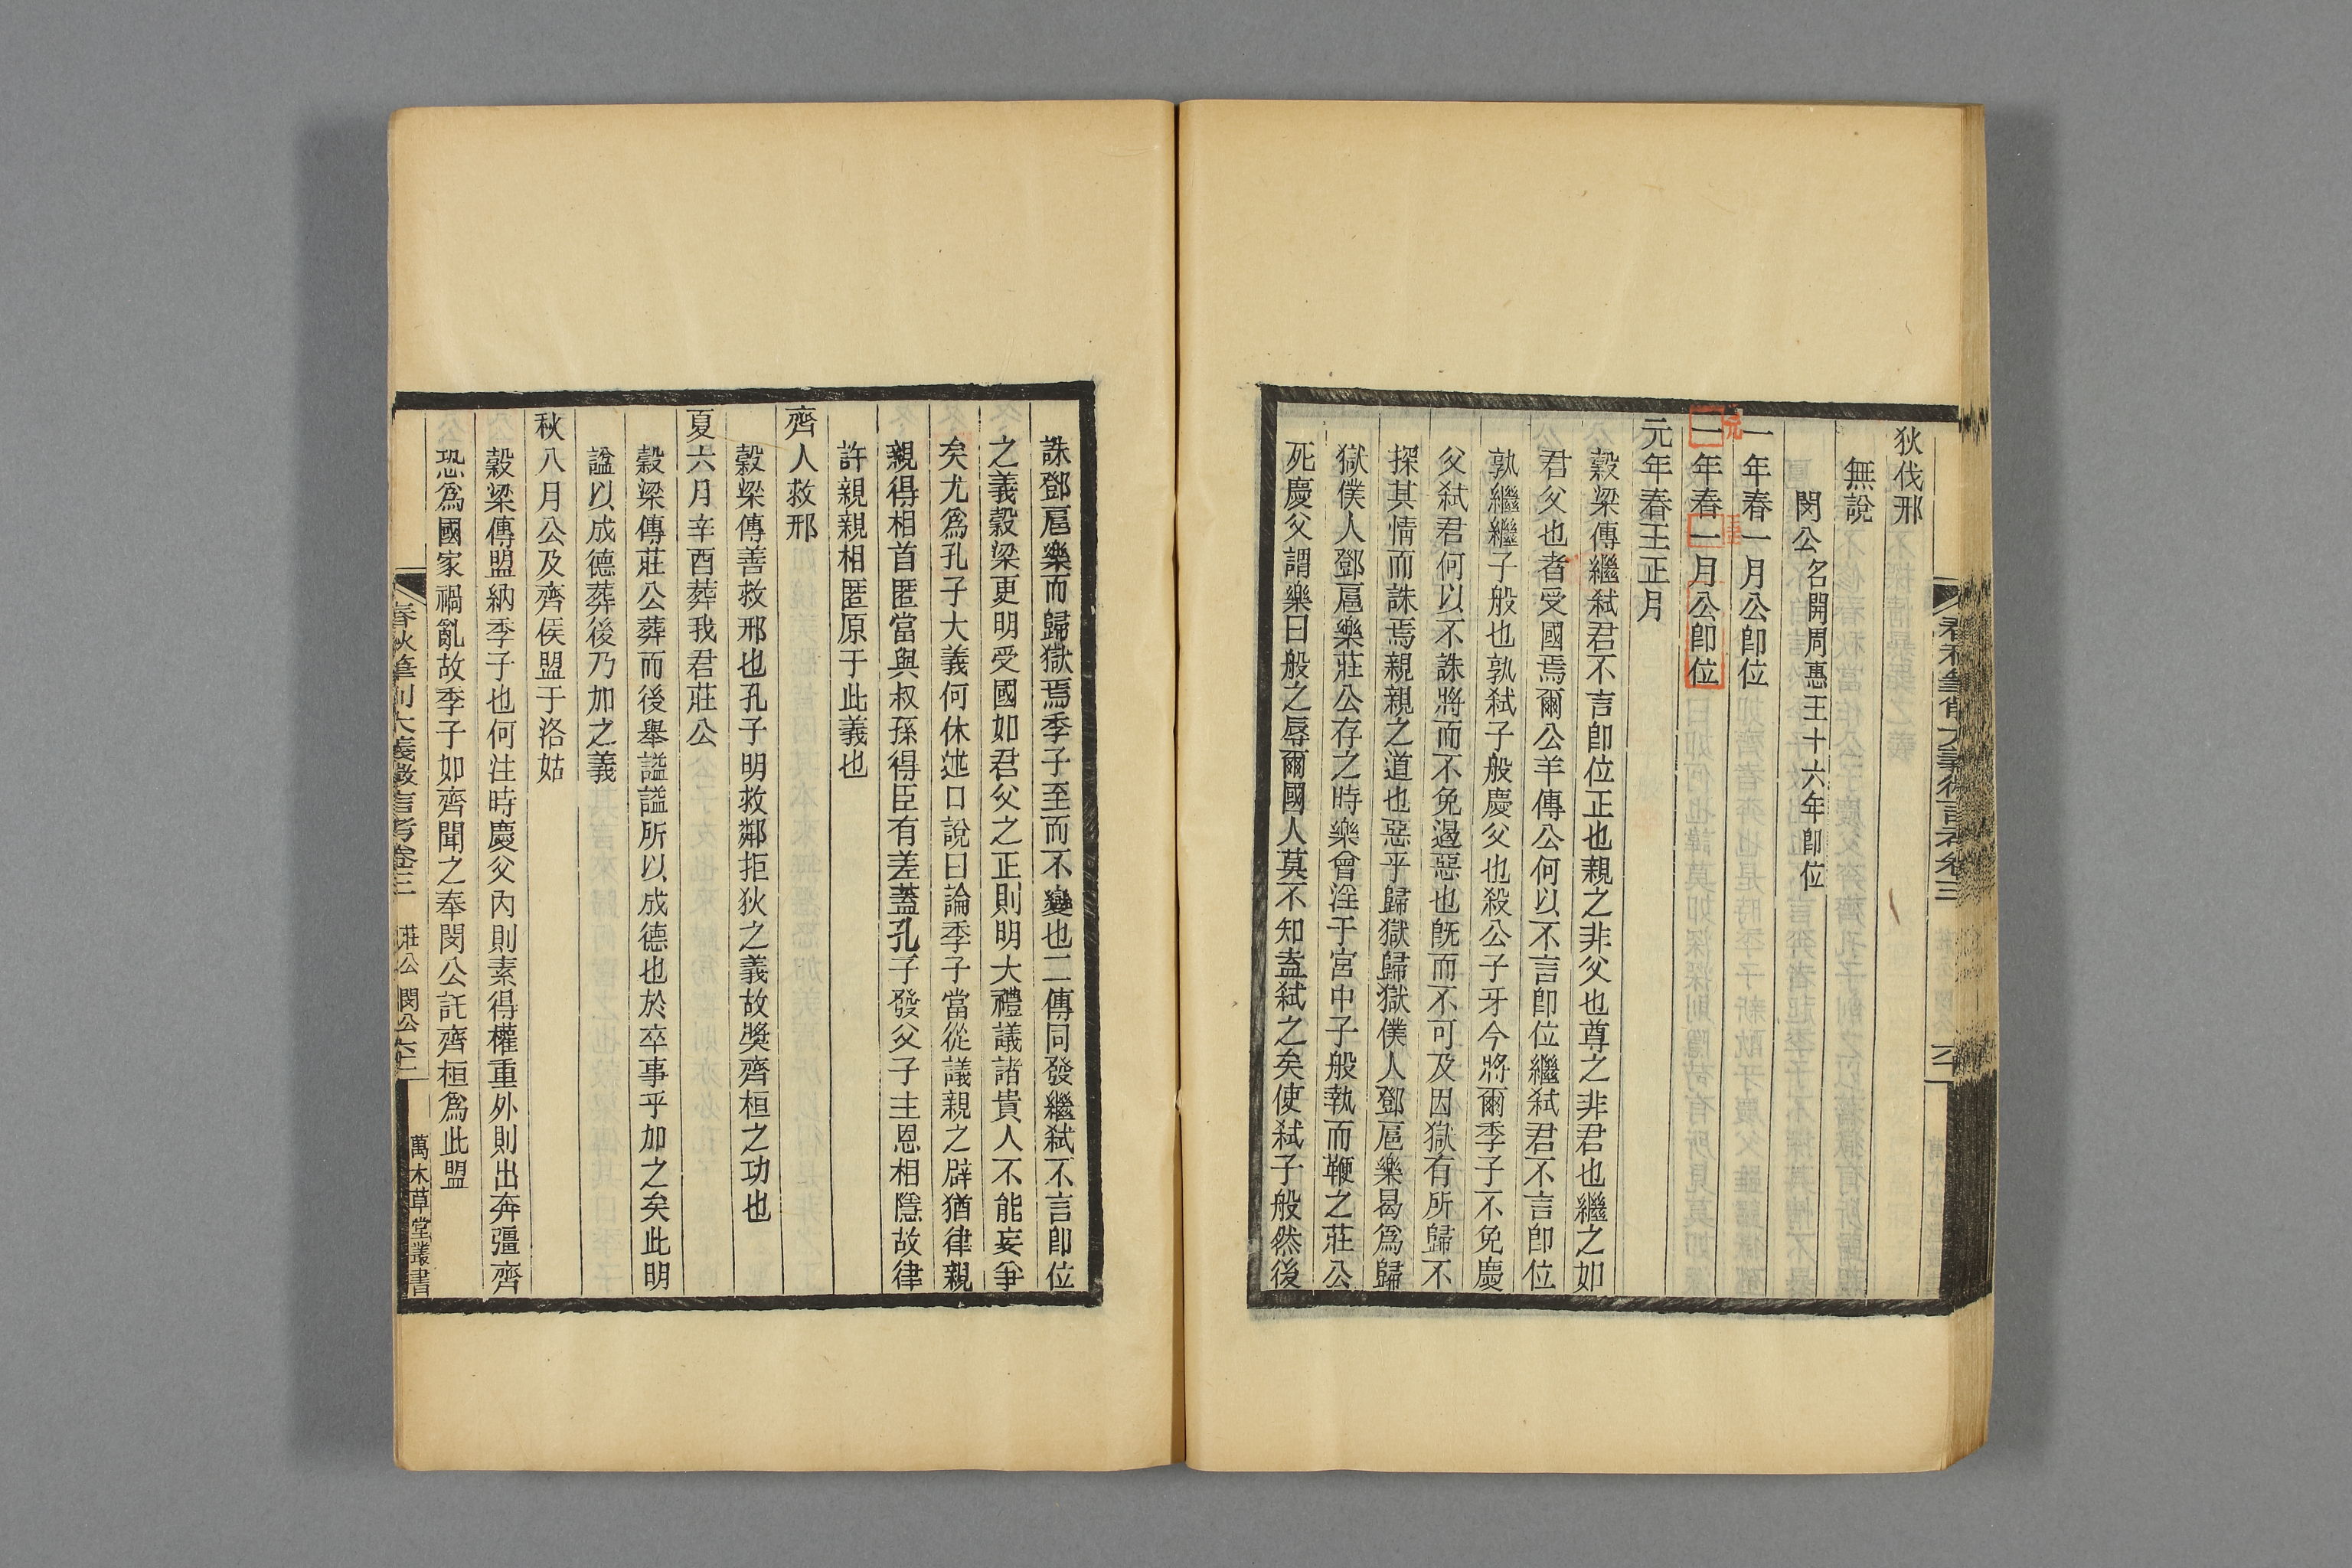 狄伐邢
無說
閔公名開周惠王十六年卽位
一年春一月公卽位
元
一年春一月公卽位
元年春王正月
穀梁傳繼弒君不言卽位正也親之非父也尊之非君也繼之如
君父也者受國焉爾公羊傳公何以不言卽位繼弒君不言卽位
孰繼繼子般也孰弒子般慶父也殺公子牙今將爾季子不免慶
父弒君何以不誅將而不免遏惡也旣而不可及因獄有所歸不
探其情而誅焉親親之道也惡乎歸獄歸獄僕人鄧扈樂曷爲歸
獄僕人鄧扈樂莊公存之時樂曾淫于宮中子般執而鞭之莊公
死慶父謂樂曰般之辱爾國人莫不知盍弒之矣使弒子般然後
誅鄧扈樂而歸獄焉季子至而不變也二傳同發繼弒不言卽位
之義穀梁更明受國如君父之正則明大禮議諸貴人不能妄爭
矣尤爲孔子大義何休述口說曰論季子當從議親之辟猶律親
親得相首匿當與叔孫得臣有差蓋孔子發父子主恩相隱故律
許親親相匿原于此義也
齊人救邢
穀梁傳善救邢也孔子明救鄰拒狄之義故奬齊桓之功也
夏六月辛酉葬我君莊公
穀梁傳莊公葬而後舉諡諡所以成德也於卒事乎加之矣此明
諡以成德葬後乃加之義
秋八月公及齊侯盟于洛姑
穀梁傳盟納季子也何注時慶父內則素得權重外則出奔彊齊
恐爲國家禍亂故季子如齊聞之奉閔公託齊桓爲此盟
春秋筆削大義微言考卷三 莊公 閔公
萬木草堂叢書